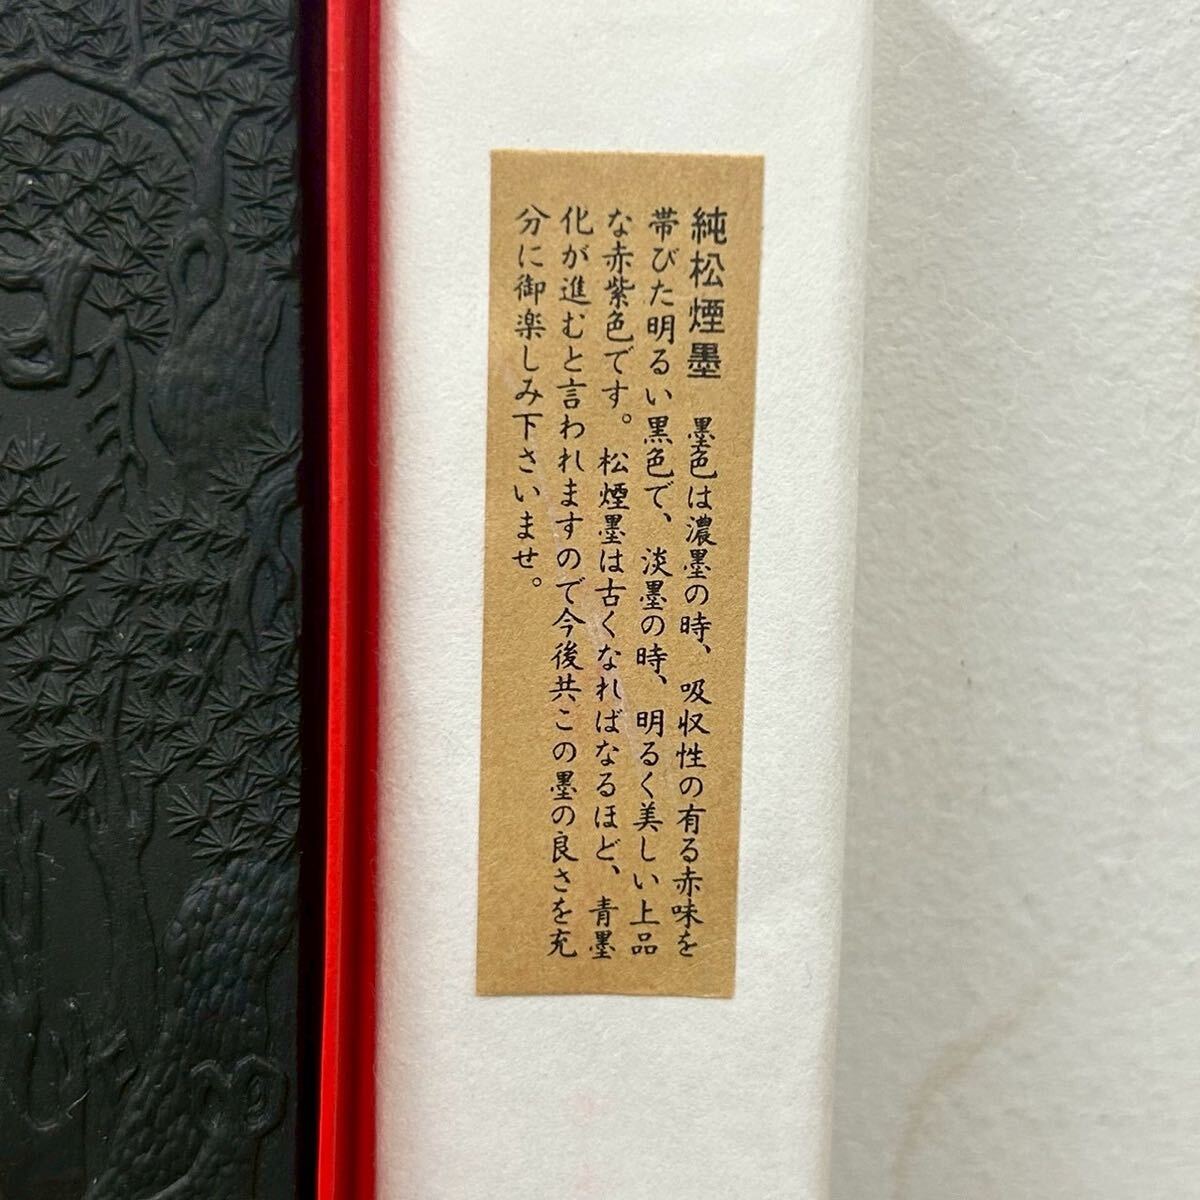 純松煙墨 墨色は濃墨の時、吸収性の有る赤味を
帯びた明るい黒色で、淡墨の時、明るく美しい上品
な赤紫色です。松煙墨は古くなればなるほど、青墨
化が進むと言われますので今後共この墨の良さを充
分に御楽しみ下さいませ。